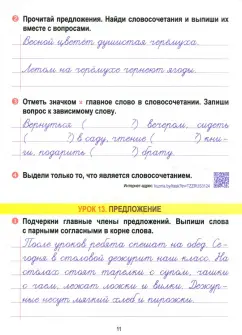 2 Прочитай предложения. Найди словосочетания и выпиши их
вместе с вопросами.
Весной цветет душистая черёмуха.
Летом на черёмухе чернеют ягоды.
3 Отметь значком × главное слово в словосочетании. Запиши
вопрос к зависимому слову.
Вернуться ( ?) вечером, сидеть
( ?) в саду, чтение ( ?) кни-
ги, подарить ( ?) брату.
4 Выдели только то, что является словосочетанием.
УРОК 13. ПРЕДЛОЖЕНИЕ
1 Подчеркни главные члены предложений. Выпиши слова
с парными согласными в корне слова.
После уроков ребята спешат на обед. Се-
годня в столовой дежурит наш класс. На
столах стоят тарелки с супом, чашки
с чаем, лежат ложки и вилки. Дежур-
ные несут мягкий хлеб и пирожки.
11